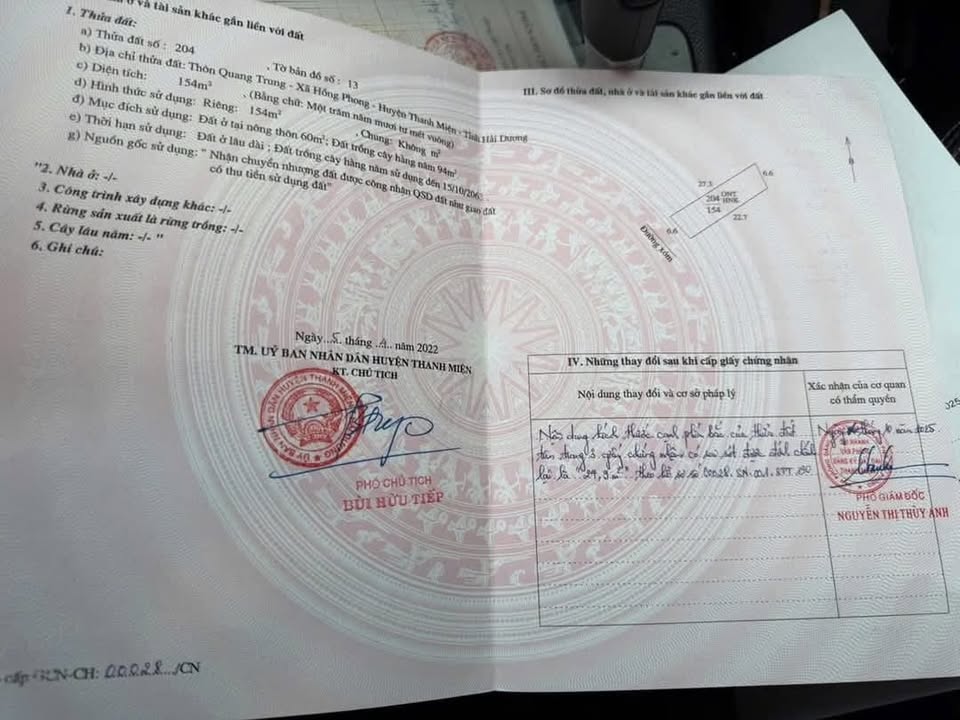 ở và tài sản khác gắn liền với đất
1. Thửa đất:
a) Thửa đất số: 204 , Tờ bản đồ số: 13
b) Địa chỉ thửa đất: Thôn Quang Trung - Xã Hồng Phong - Huyện Thanh Miện - Tỉnh Hải Dương
c) Diện tích: 154m² , (Bằng chữ: Một trăm năm mươi tư mét vuông)
d) Hình thức sử dụng: Riêng: 154m² , Chung: Không m²
đ) Mục đích sử dụng: Đất ở tại nông thôn 60m²; Đất trồng cây hàng năm 94m².
e) Thời hạn sử dụng: Đất ở lâu dài ; Đất trồng cây hàng năm sử dụng đến 15/10/206
g) Nguồn gốc sử dụng: " Nhận chuyển nhượng đất được công nhận QSD đất như giao đất
có thu tiền sử dụng đất"
"2. Nhà ở: -/-
3. Công trình xây dựng khác: -/-
4. Rừng sản xuất là rừng trồng: -/-
5. Cây lâu năm: -/- "
6. Ghi chú:
Ngày...5. tháng ..4.. năm 2022
TM. UỶ BAN NHÂN DÂN HUYỆN THANH MIỆN
KT. CHỦ TỊCH
PHÓ CHỦ TỊCH
BÙI HỮU TIẾP
cấp GCN-CH: 00028.../CN
III. Sơ đồ thửa đất, nhà ở và tài sản khác gắn liền với đất
27.3
6.6
204 ONT
HNK
154
22.7
6.6
Đường xóm
IV. Những thay đổi sau khi cấp giấy chứng nhận
Nội dung thay đổi và cơ sở pháp lý
Xác nhận của cơ quan
có thẩm quyền
Nội dung kích thước cạnh phía bắc của thửa đất
trên trang 3 giấy chứng nhận có sai sót được đính chính
lại là theo hồ sơ số 00028.
năm 2025
PHÓ GIÁM ĐỐC
NGUYỄN THỊ THÙY ANH
325